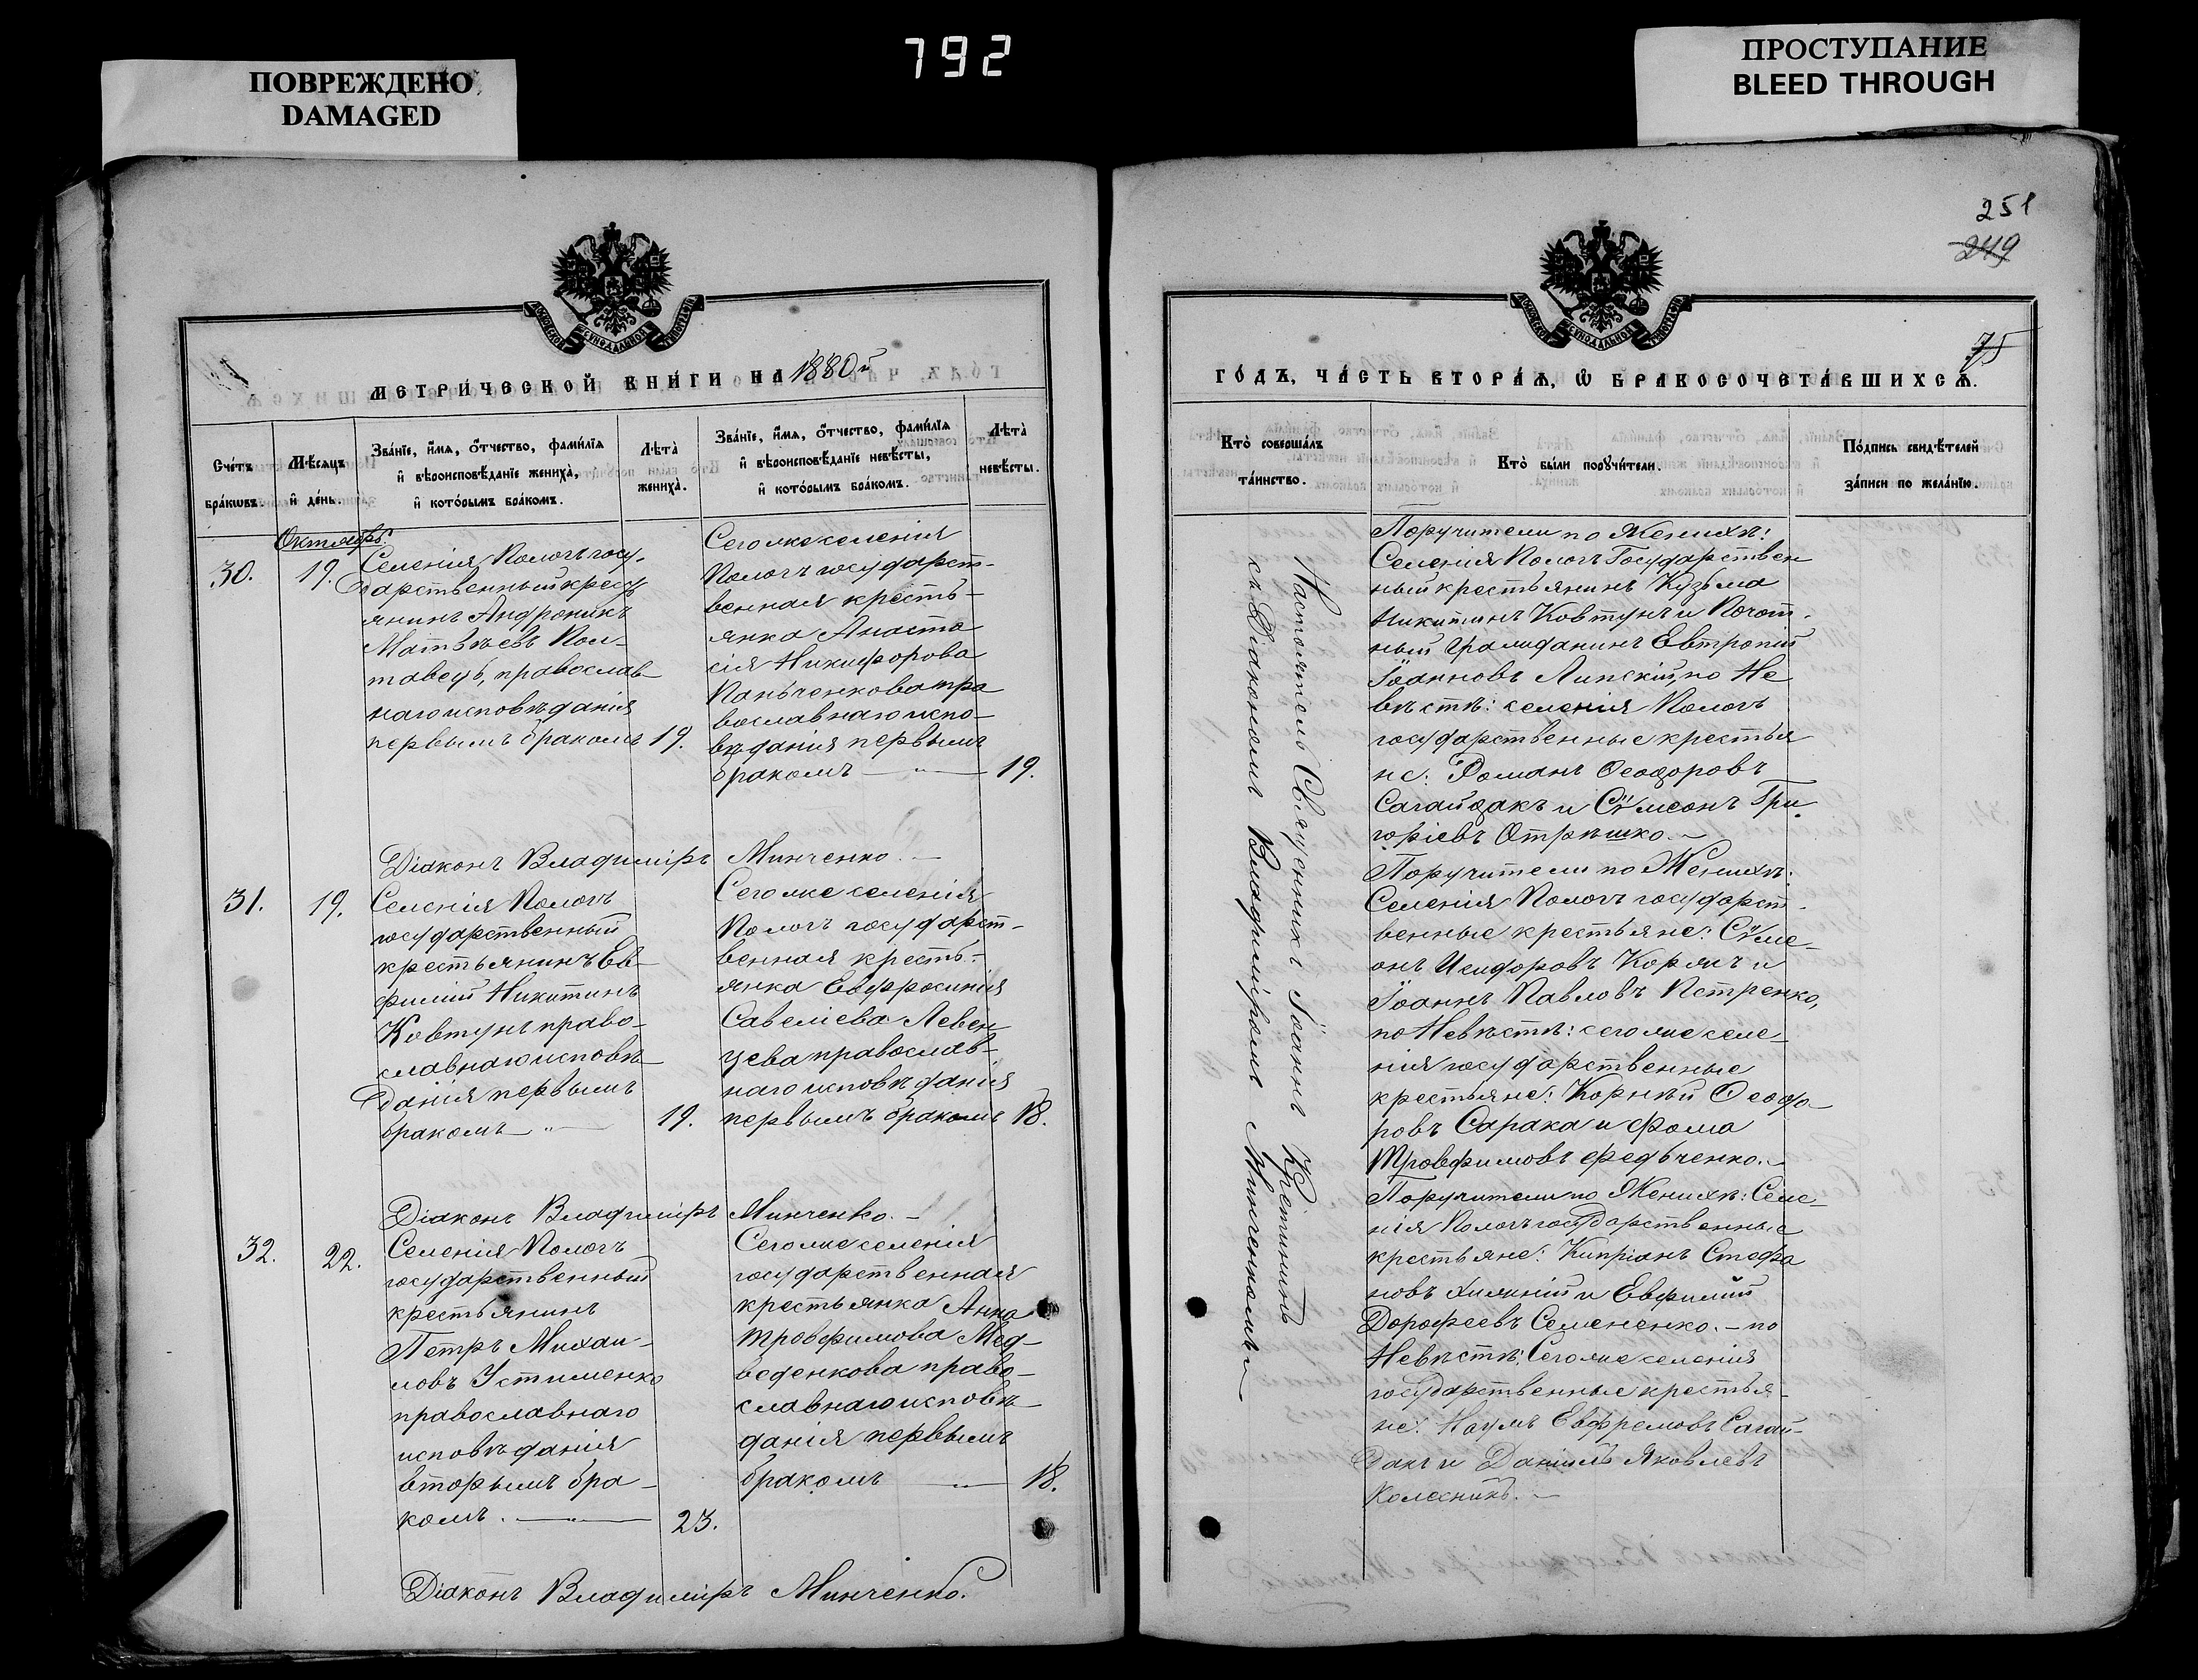 792
ПОВРЕЖДЕНО
DAMAGED
ПРОСТУПАНИЕ
BLEED THROUGH
МЕТРИЧЕСКОЙ КНИГИ НА 1880й
Счетъ браковъ.
Мѣсяцъ и день.
Званіе, имя, отчество, фамилія
и вѣроисповѣданіе жениха,
и которымъ бракомъ.
Лѣта
жениха.
Званіе, имя, отчество, фамилія
и вѣроисповѣданіе невѣсты,
и которымъ бракомъ.
Лѣта
невѣсты.
Октябрь
30.
19.
Селенія Пологъ госу-
дарственный кресть
янинъ Андроникъ
Матвѣевъ Пол-
тавецъ, православ
наго исповѣданія
первымъ бракомъ 19.
Сегоже селенія
Пологъ государст-
венная кресть-
янка Анаста
сія Никифорова
Панченкова пра
вославнаго испо-
вѣданія первымъ
бракомъ — 19.
Діаконъ Владиміръ Минченко. —
31.
19.
Селенія Пологъ
государственный
крестьянинъ Ев-
фимій Никитинъ
Ковтунъ право-
славнаго исповѣ-
данія первымъ
бракомъ — 19.
Сегоже селенія
Пологъ государст-
венная кресть-
янка Евфросинія
Савеліева Левен
цева православ-
наго исповѣданія
первымъ бракомъ 18.
Діаконъ Владиміръ Минченко. —
32.
22.
Селенія Пологъ
государственный
крестьянинъ
Петръ Михаи-
ловъ Устименко
православнаго
исповѣданія
вторымъ бра-
комъ. — 23.
Сегоже селенія
государственная
крестьянка Анна
Трофимова Мед-
веденкова право-
славнаго исповѣ-
данія первымъ
бракомъ — 18.
Діаконъ Владиміръ Минченко.
251
249
75
ГОДЪ, ЧАСТЬ ВТОРАЯ, Ѡ БРАКОСОЧЕТАВШИХСЯ.
Кто совершалъ
таинство.
Кто были поручители.
Подпись свидѣтелей
записи по желанію.
Настоятель Священникъ Іоаннъ
съ Діакономъ Владиміромъ Минченкомъ
Поручители по Женихѣ:
Селенія Пологъ Государствен
ный крестьянинъ Кузьма
Никитинъ Ковтунъ и Почот.
ный Гражданинъ Евтропій
Іоанновъ Липскій, по Не
вѣстѣ: селенія Пологъ
государственные крестья
не: Романъ Ѳеодоровъ
Сагайдакъ и Сѵмеонъ Гри
горіевъ Отрѣшко. —
Поручители по Женихѣ:
Селенія Пологъ государст-
венные крестьяне: Сѵме-
онъ Исидоровъ Корякъ и
Іоаннъ Павловъ Петренко,
по Невѣстѣ: сегоже селе-
нія государственные
крестьяне: Корнѣй Ѳеодо-
ровъ Сарака и Фома
Тровфимовъ Федченко. —
Поручители по Женихѣ: Селе-
нія Пологъ государственные
крестьяне: Кипріанъ Стефа
новъ и Евфимій
Дорофеевъ Семененко. — по
Невѣстѣ: Сегоже селенія
государственные крестья-
не: Наумъ Евфремовъ Сагай-
дакъ и Даніилъ Яковлевъ
Колесникъ. —